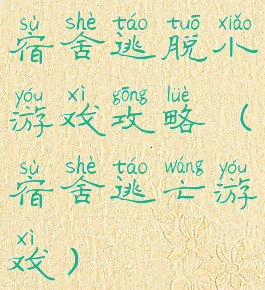 sù shè táo tuō xiǎo
宿舍逃脱小
yóu xì gōng lüè
游戏攻略（
sù shè táo wáng yóu
宿舍逃亡游
xì
戏）